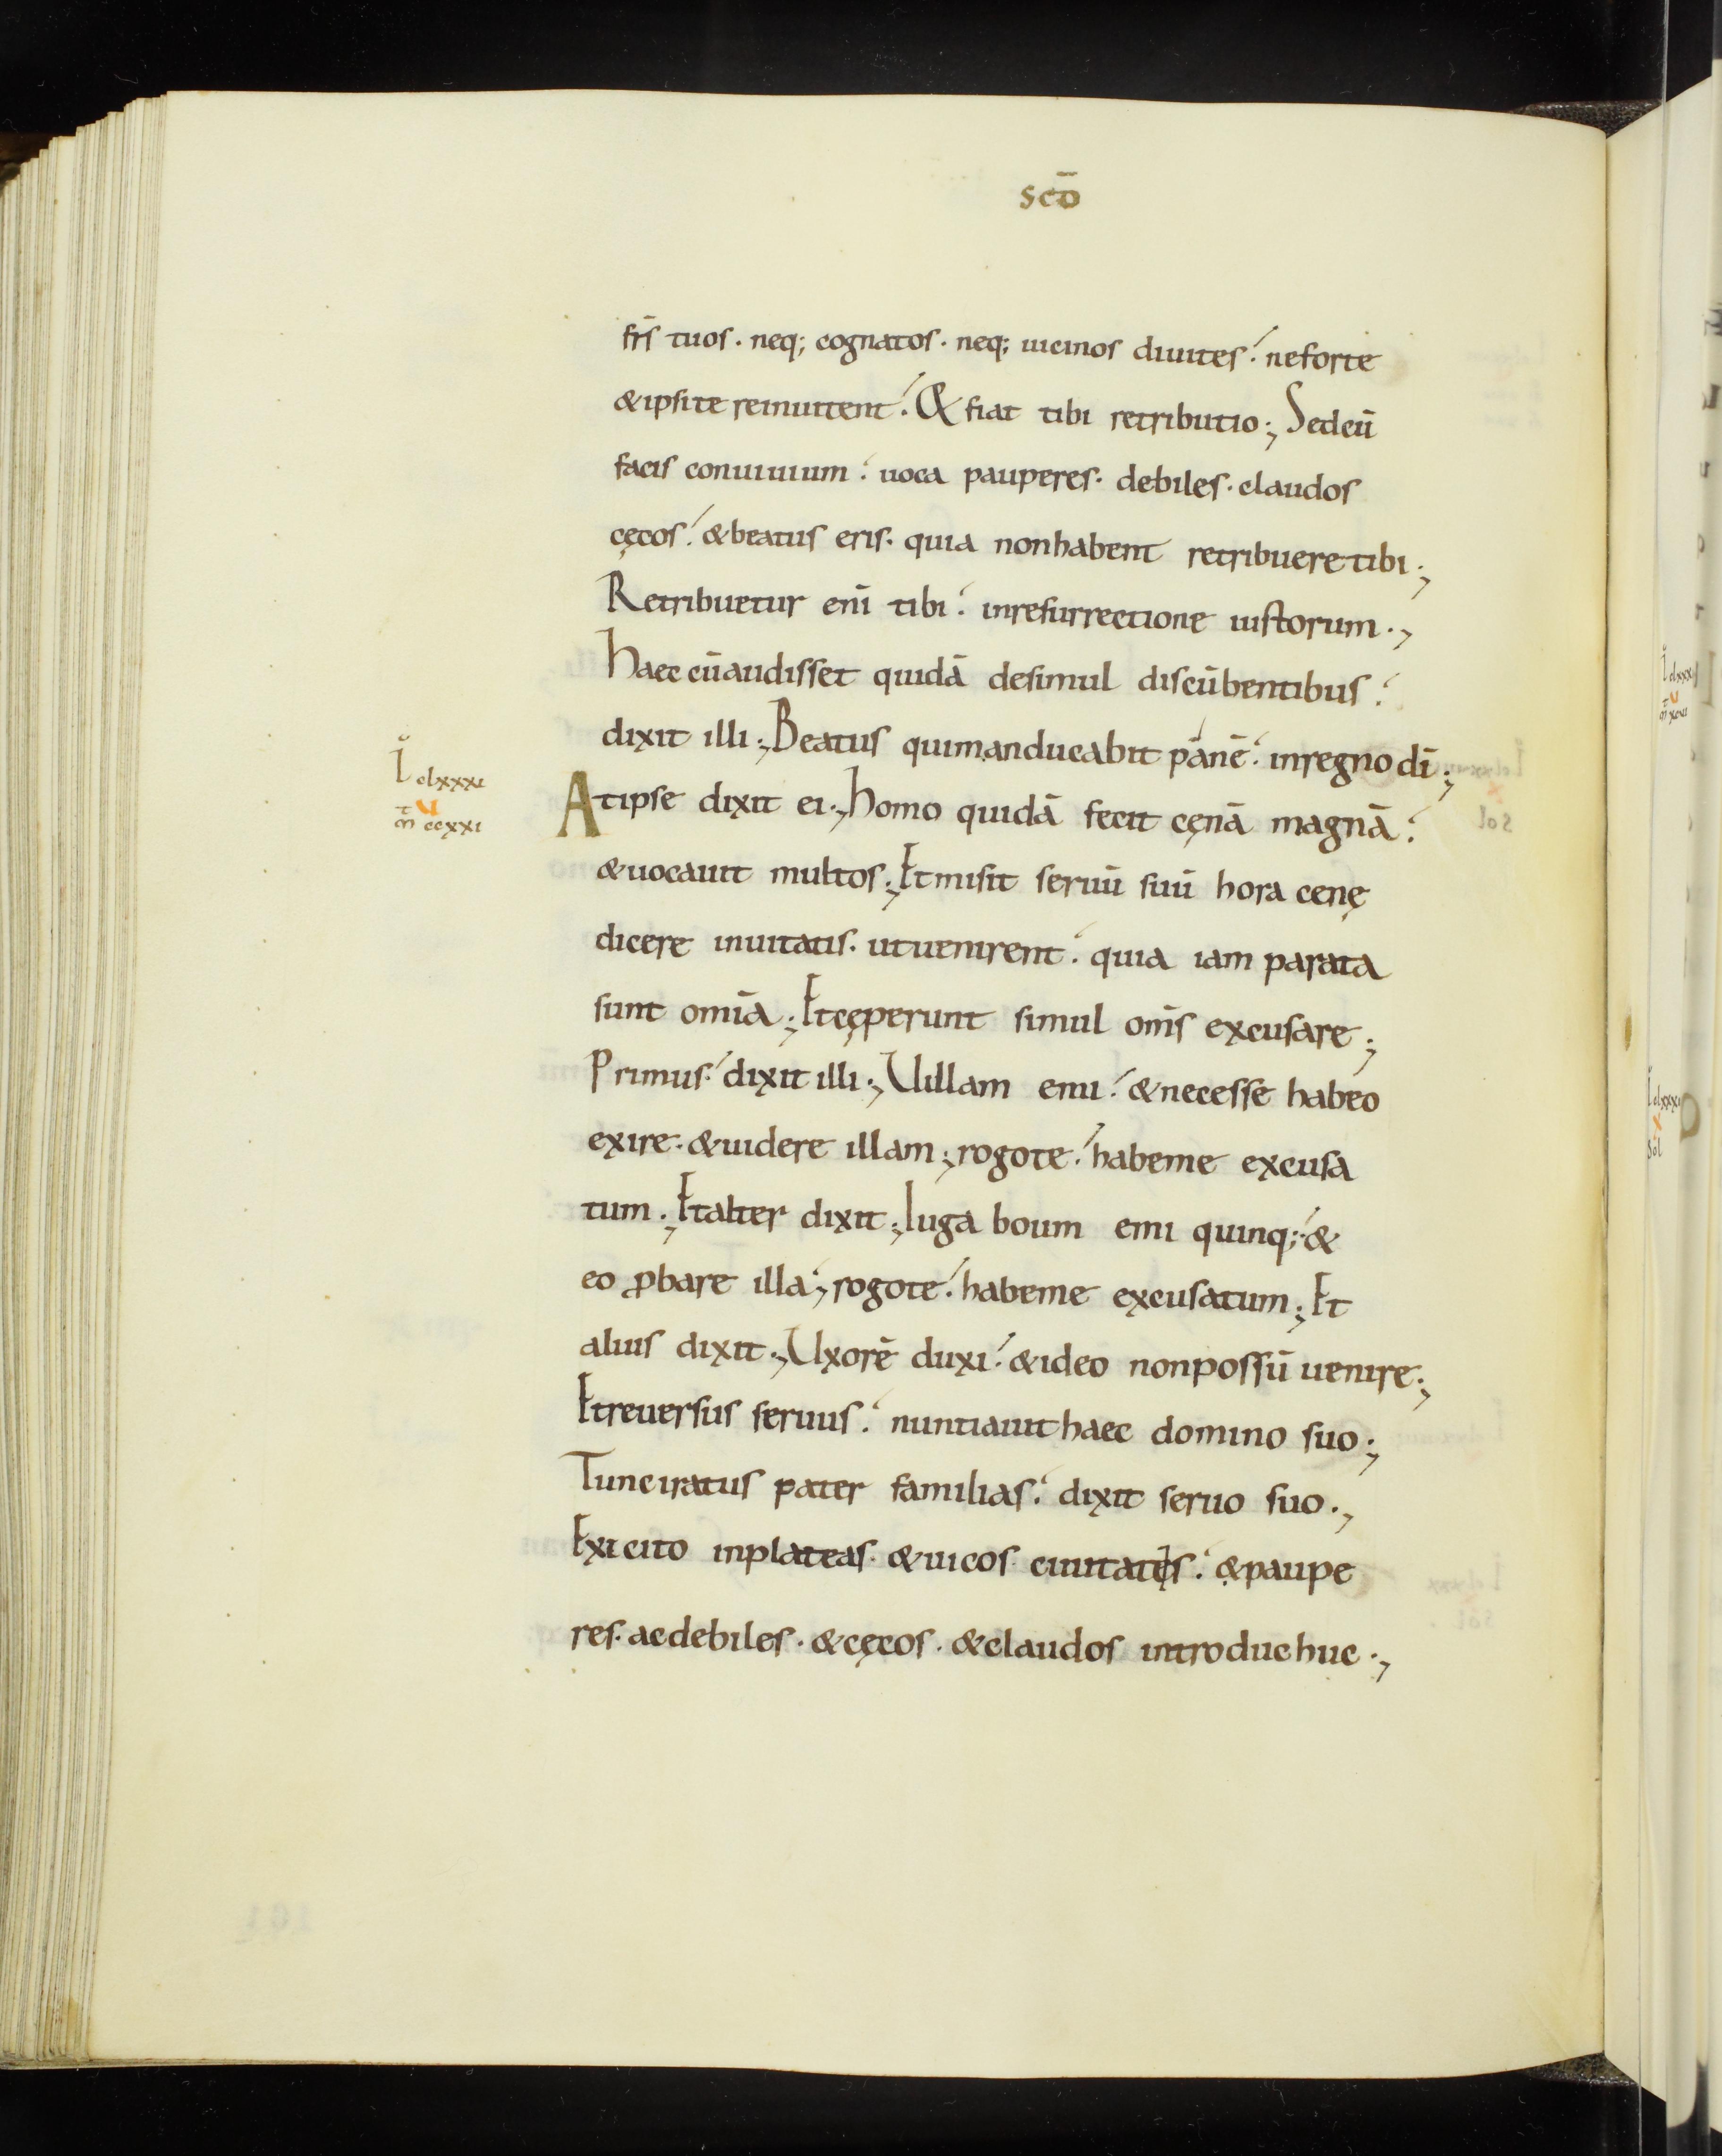 scō
fr̄s tuos · neq; cognatos · neq; uicinos diuites · neforte
&ipsite reinuitent · & fiat tibi retributio ; Sedcū
facis conuiuium · uoca pauperes · debiles · claudos
cęcos · &beatus eris · quia nonhabent retribuere tibi ;
Retribuetur enī tibi · inresurrectione iustorum ·,
Haec cūaudisset quidā desimul discūbentibus ·
dixit illi ; Beatus quimanducabit pánē · inregno dī ;
L̆ clxxxi
Atipse dixit ei ·, homo quidā fecit cęnā magnā ·
u
m̄ ccxxi
&uocauit multos ; Etmisit seruū suū hora cenę
dicere inuitatis · utuenirent · quia iam parata
sunt omīa ; Etcęperunt simul om̄s excusare ;
Primus · dixit illi ; Uillam emi · &necesse habeo
exire · &uidere illam ; rogote · habeme excusa
tum ; Etalter dixit ; Iuga boum emi quinq; · &
eo ꝓbare illa ; rogote · habeme excusatum ; Et
alius dixit ·, Uxorē duxi · &ideo nonpossū uenire ;
Etreuersus seruus · nuntiauit haec domino suo ;
Tunc iratus pater familias · dixit seruo suo ·,
Exi cito inplateas · &uicos ciuitatis · &paupe
res · acdebiles · &cęcos · &claudos introduc huc ·,